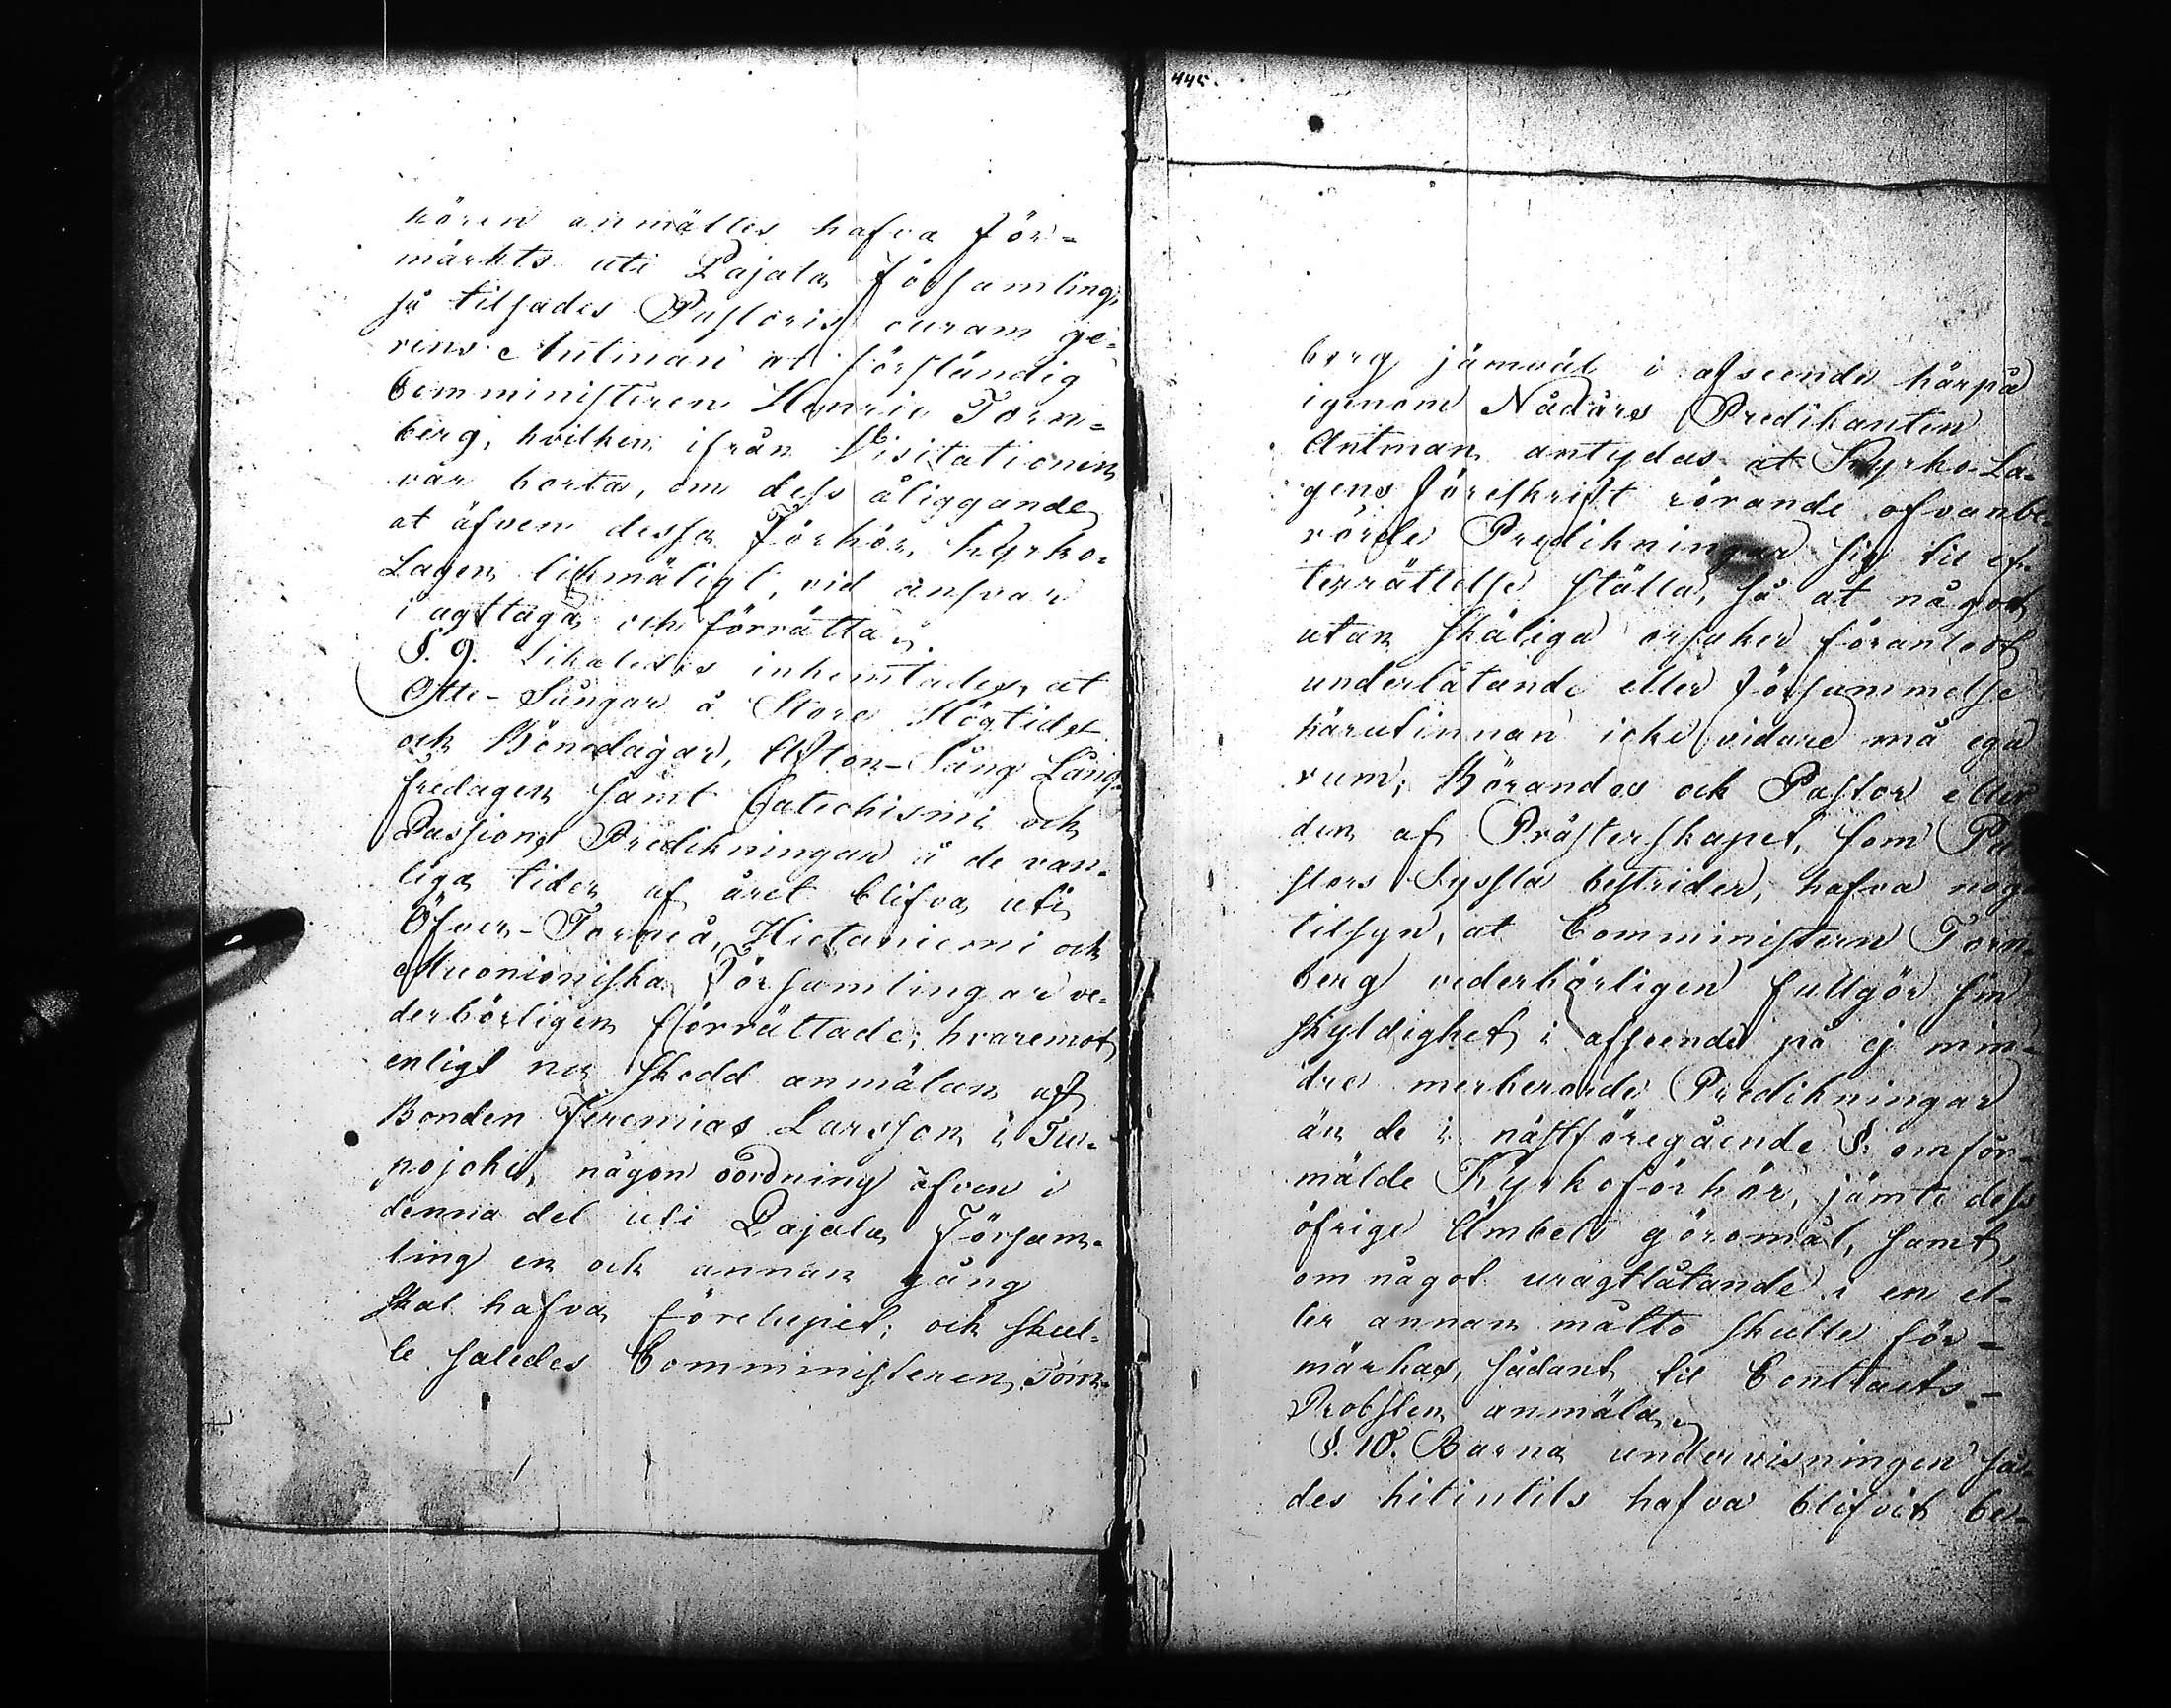 hören anmältes hafva för-
märkts uti Pajala församling,
så tilsades Pastoris curam ge-
rens Antman at förständig
Comministeren Henric Torn-
berg, hvilken ifrån Visitationen
var borta, om dess åliggande
at äfven dessa Förhör, kyrko-
Lagen likmäligt, vid ansvar
i agttaga och förrätta.
§. 9. Likaledes inhemtades, at
Otte-Sångar å Store Högtides
och Bönedagar, Afton-Sång Lång-
fredagen samt Catechismi och
Passions Predikningar å de van-
liga tider af året blifva uti
Öfver-Torneå, Hietaniemi och
Muonioniska Församlingar ve-
derbörligen förrättade; hvaremot
enligt nu skedd anmälan af
Bonden Jeremias Larsson i Tu-
pojoki, någon oordning äfven i
denna del uti Pajala Försam-
ling en och annan gång
skal hafva förelupit; och skul-
le saledes Comministeren Torn-
445.
berg jämväl i afseende härpå
igenom Nådårs Predikanten
Antman antydas at Kyrko-La-
gens föreskrift rörande ofvanbe-
rörde Predikningar sig til ef-
terrättelse ställa, så at något
utan skäliga orsaker föranledt
underlåtande eller försummelse
härutinnan icke vidare må ega
rum; Börandes och Pastor eller
den af Prästerskapet, som Pa
stors Syssla bestrider, hafva noga
tilsyn, at Comministern Torn-
berg vederbörligen fullgör sin
skyldighet i afseende på ej min-
dre merberörde Predikningar
än de i nästföregående §. omför-
mälde Kyrkoförhör, jämte dess
öfrige Ämbets göromål, samt,
om något uragtlåtande i en el-
ler annan måtto skulle för-
märkas, sådant til Contracts-
Probsten anmäla.
§. 10. Barna undervisningen sa
des hitintils hafva blifvit be-